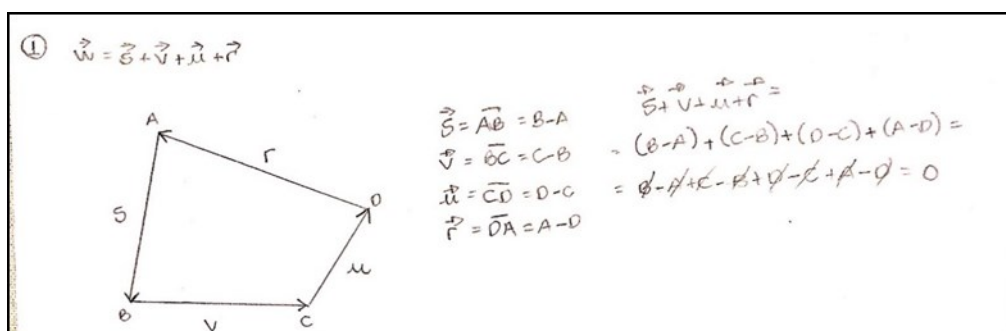 ① w⃗ = s⃗ + v⃗ + u⃗ + r⃗
A
r
D
S
u
B
V
C
s⃗ = A͞B = B-A
v⃗ = B͞C = C-B
u⃗ = C͞D = D-C
r⃗ = D͞A = A-D
s⃗ + v⃗ + u⃗ + r⃗ =
= (B-A) + (C-B) + (D-C) + (A-D) =
= B-A+C-B+D-C+A-D = 0